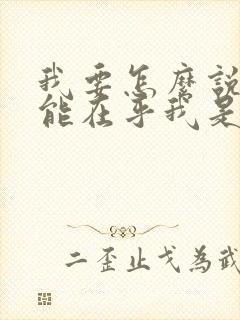 我要怎麼說
能在乎我是
二歪止戈為武